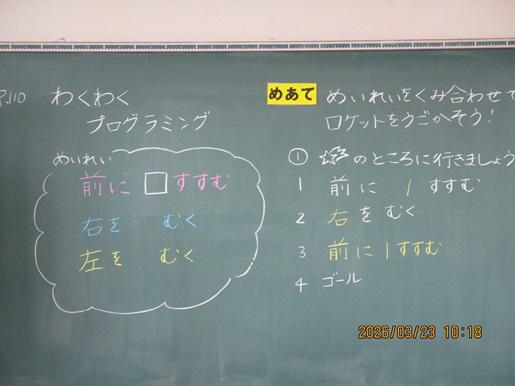 P.110 わくわく
プログラミング
めいれい
前に □ すすむ
右を むく
左を むく
めあて めいれいをくみ合わせて
ロケットをうごかそう!
① ☆のところに行きましょう
1 前に 1 すすむ
2 右をむく
3 前に1すすむ
4 ゴール
2026/03/23 10:18